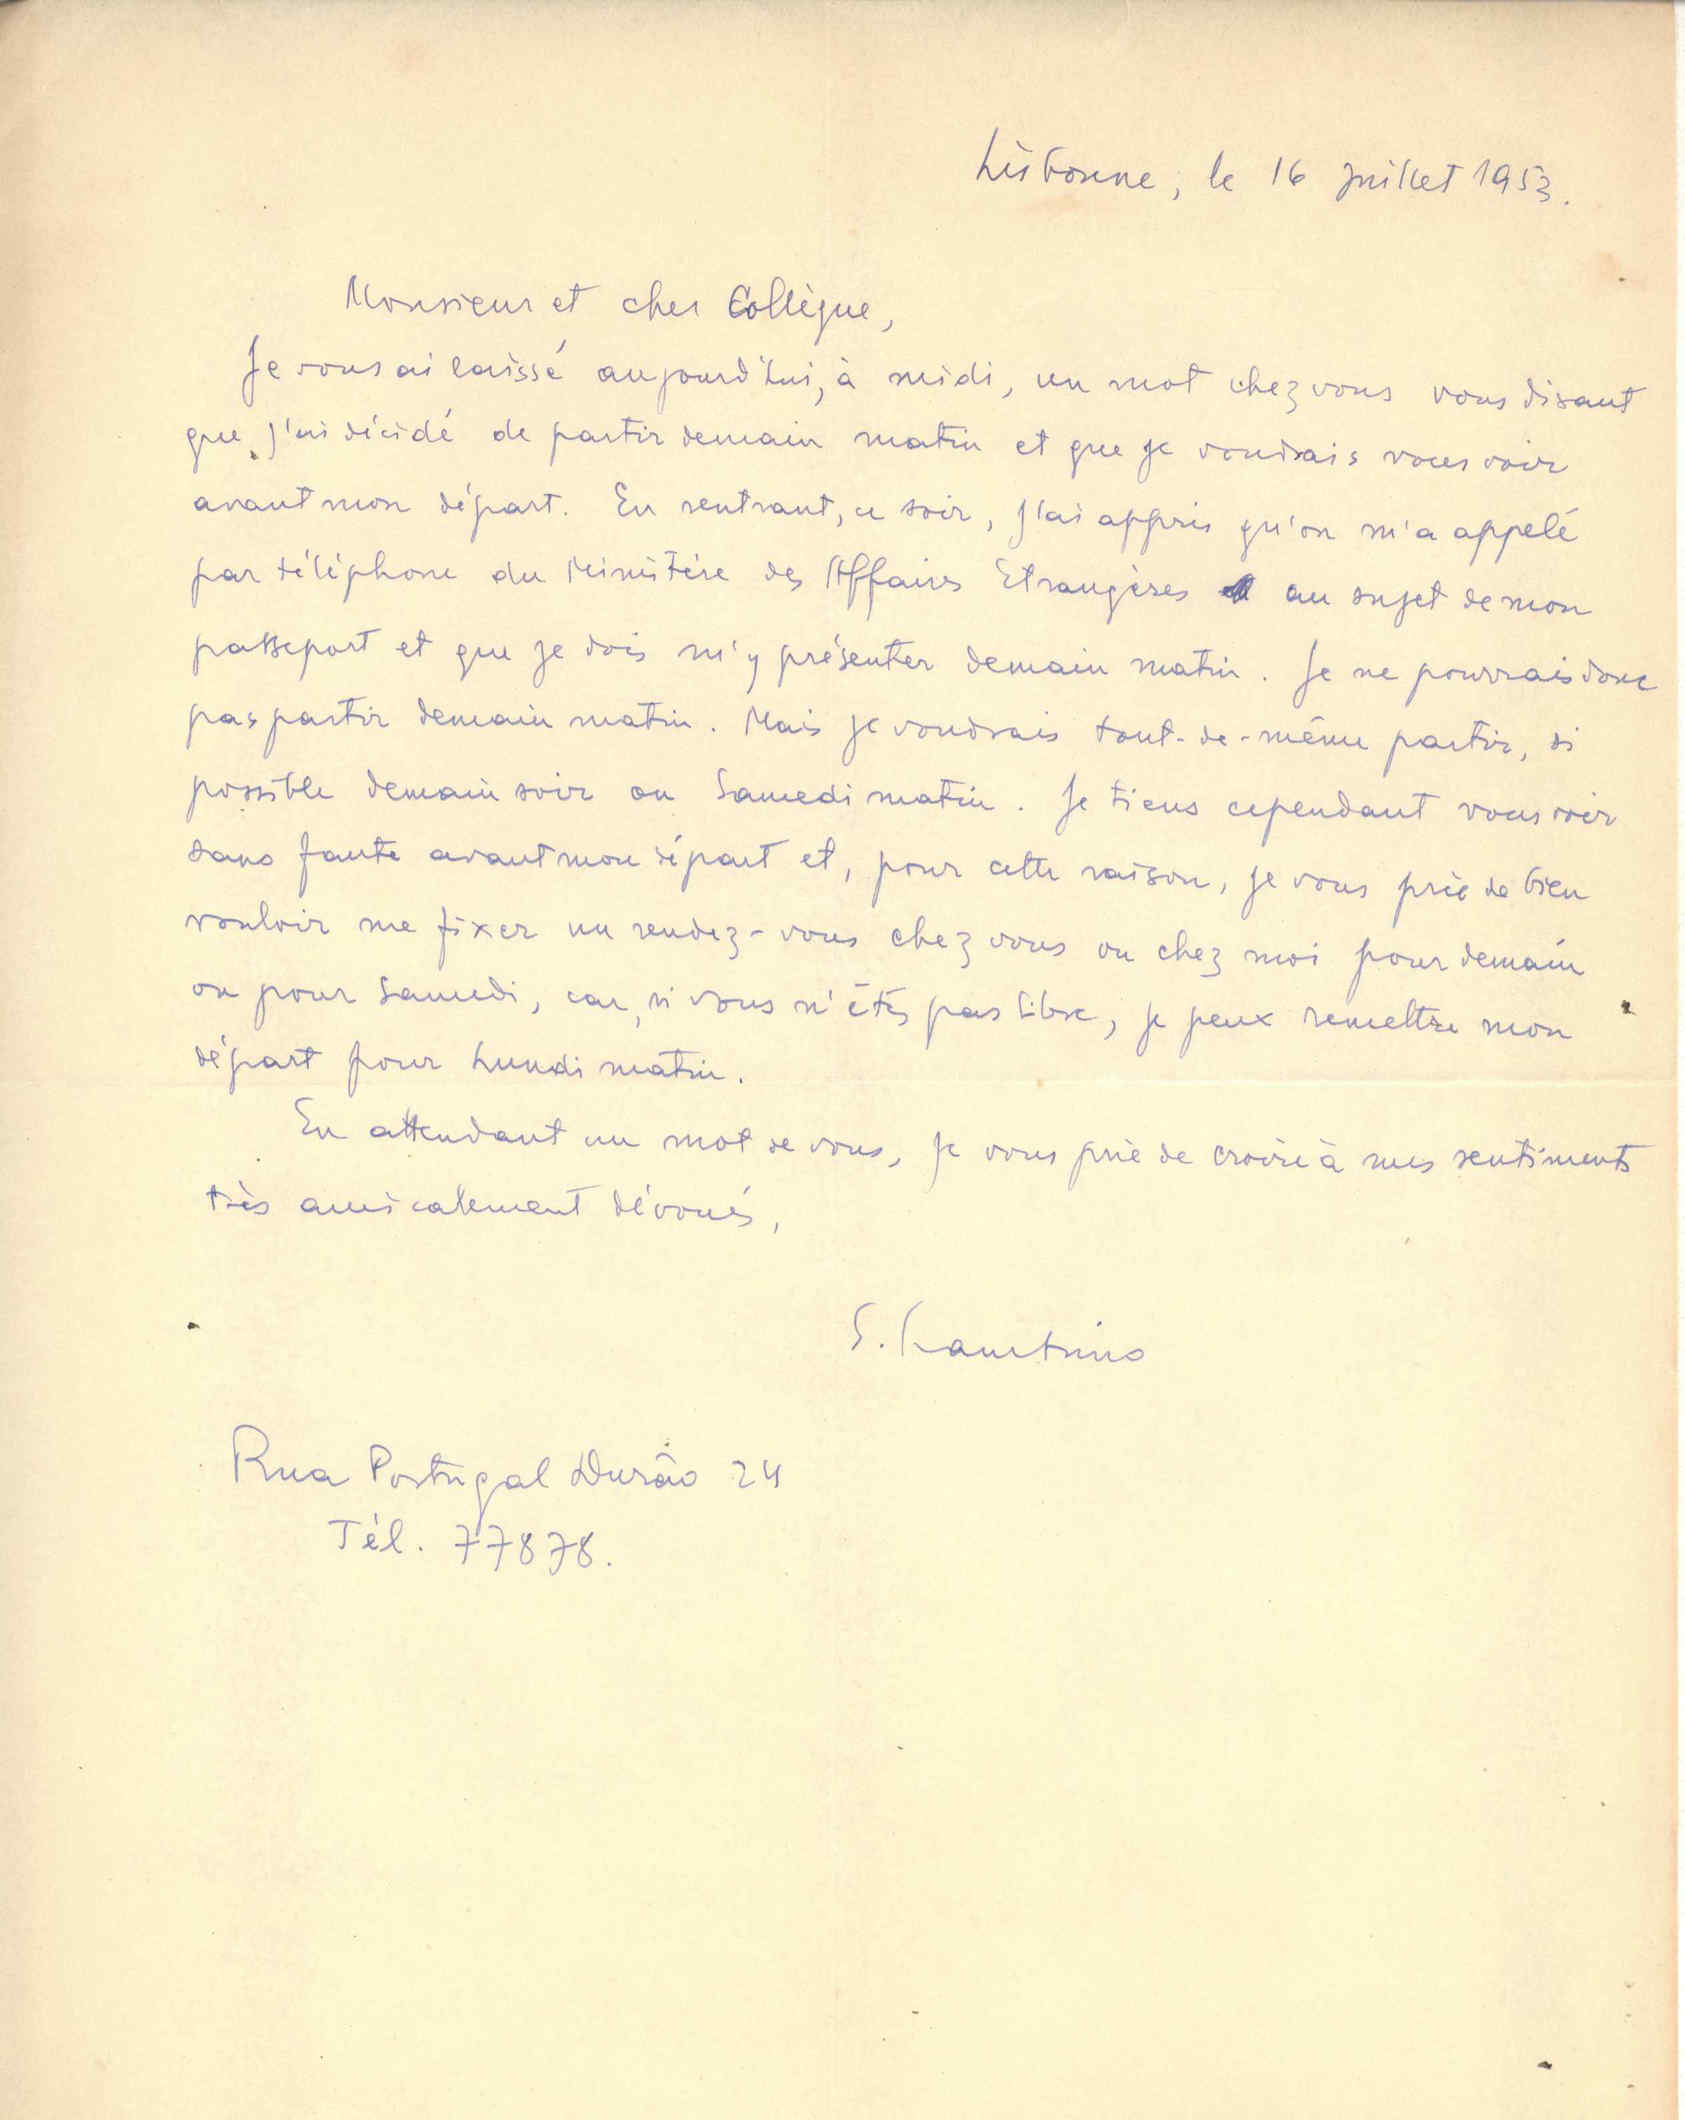 Lisbonne, le 16 Juillet 1953.
Monsieur et cher Collègue,
Je vous ai laissé aujourd'hui, à midi, un mot chez vous vous disant
que j'ai décidé de partir demain matin et que je voudrais vous voir
avant mon départ. En rentrant, ce soir, j'ai appris qu'on m'a appelé
par téléphone du Ministère des Affaires Etrangères au sujet de mon
passeport et que je dois m'y présenter demain matin. Je ne pourrais donc
pas partir demain matin. Mais je voudrais tout-de-même partir, si
possible demain soir ou Samedi matin. Je tiens cependant vous voir
sans faute avant mon départ et, pour cette raison, je vous prie de bien
vouloir me fixer un rendez-vous chez vous ou chez moi pour demain
ou pour Samedi, car, si vous n'êtes pas libre, je peux remettre mon
départ pour Lundi matin.
En attendant un mot de vous, je vous prie de croire à mes sentiments
très amicalement dévoués,
S.
Rua Portugal Durão 24
Tél. 77878.